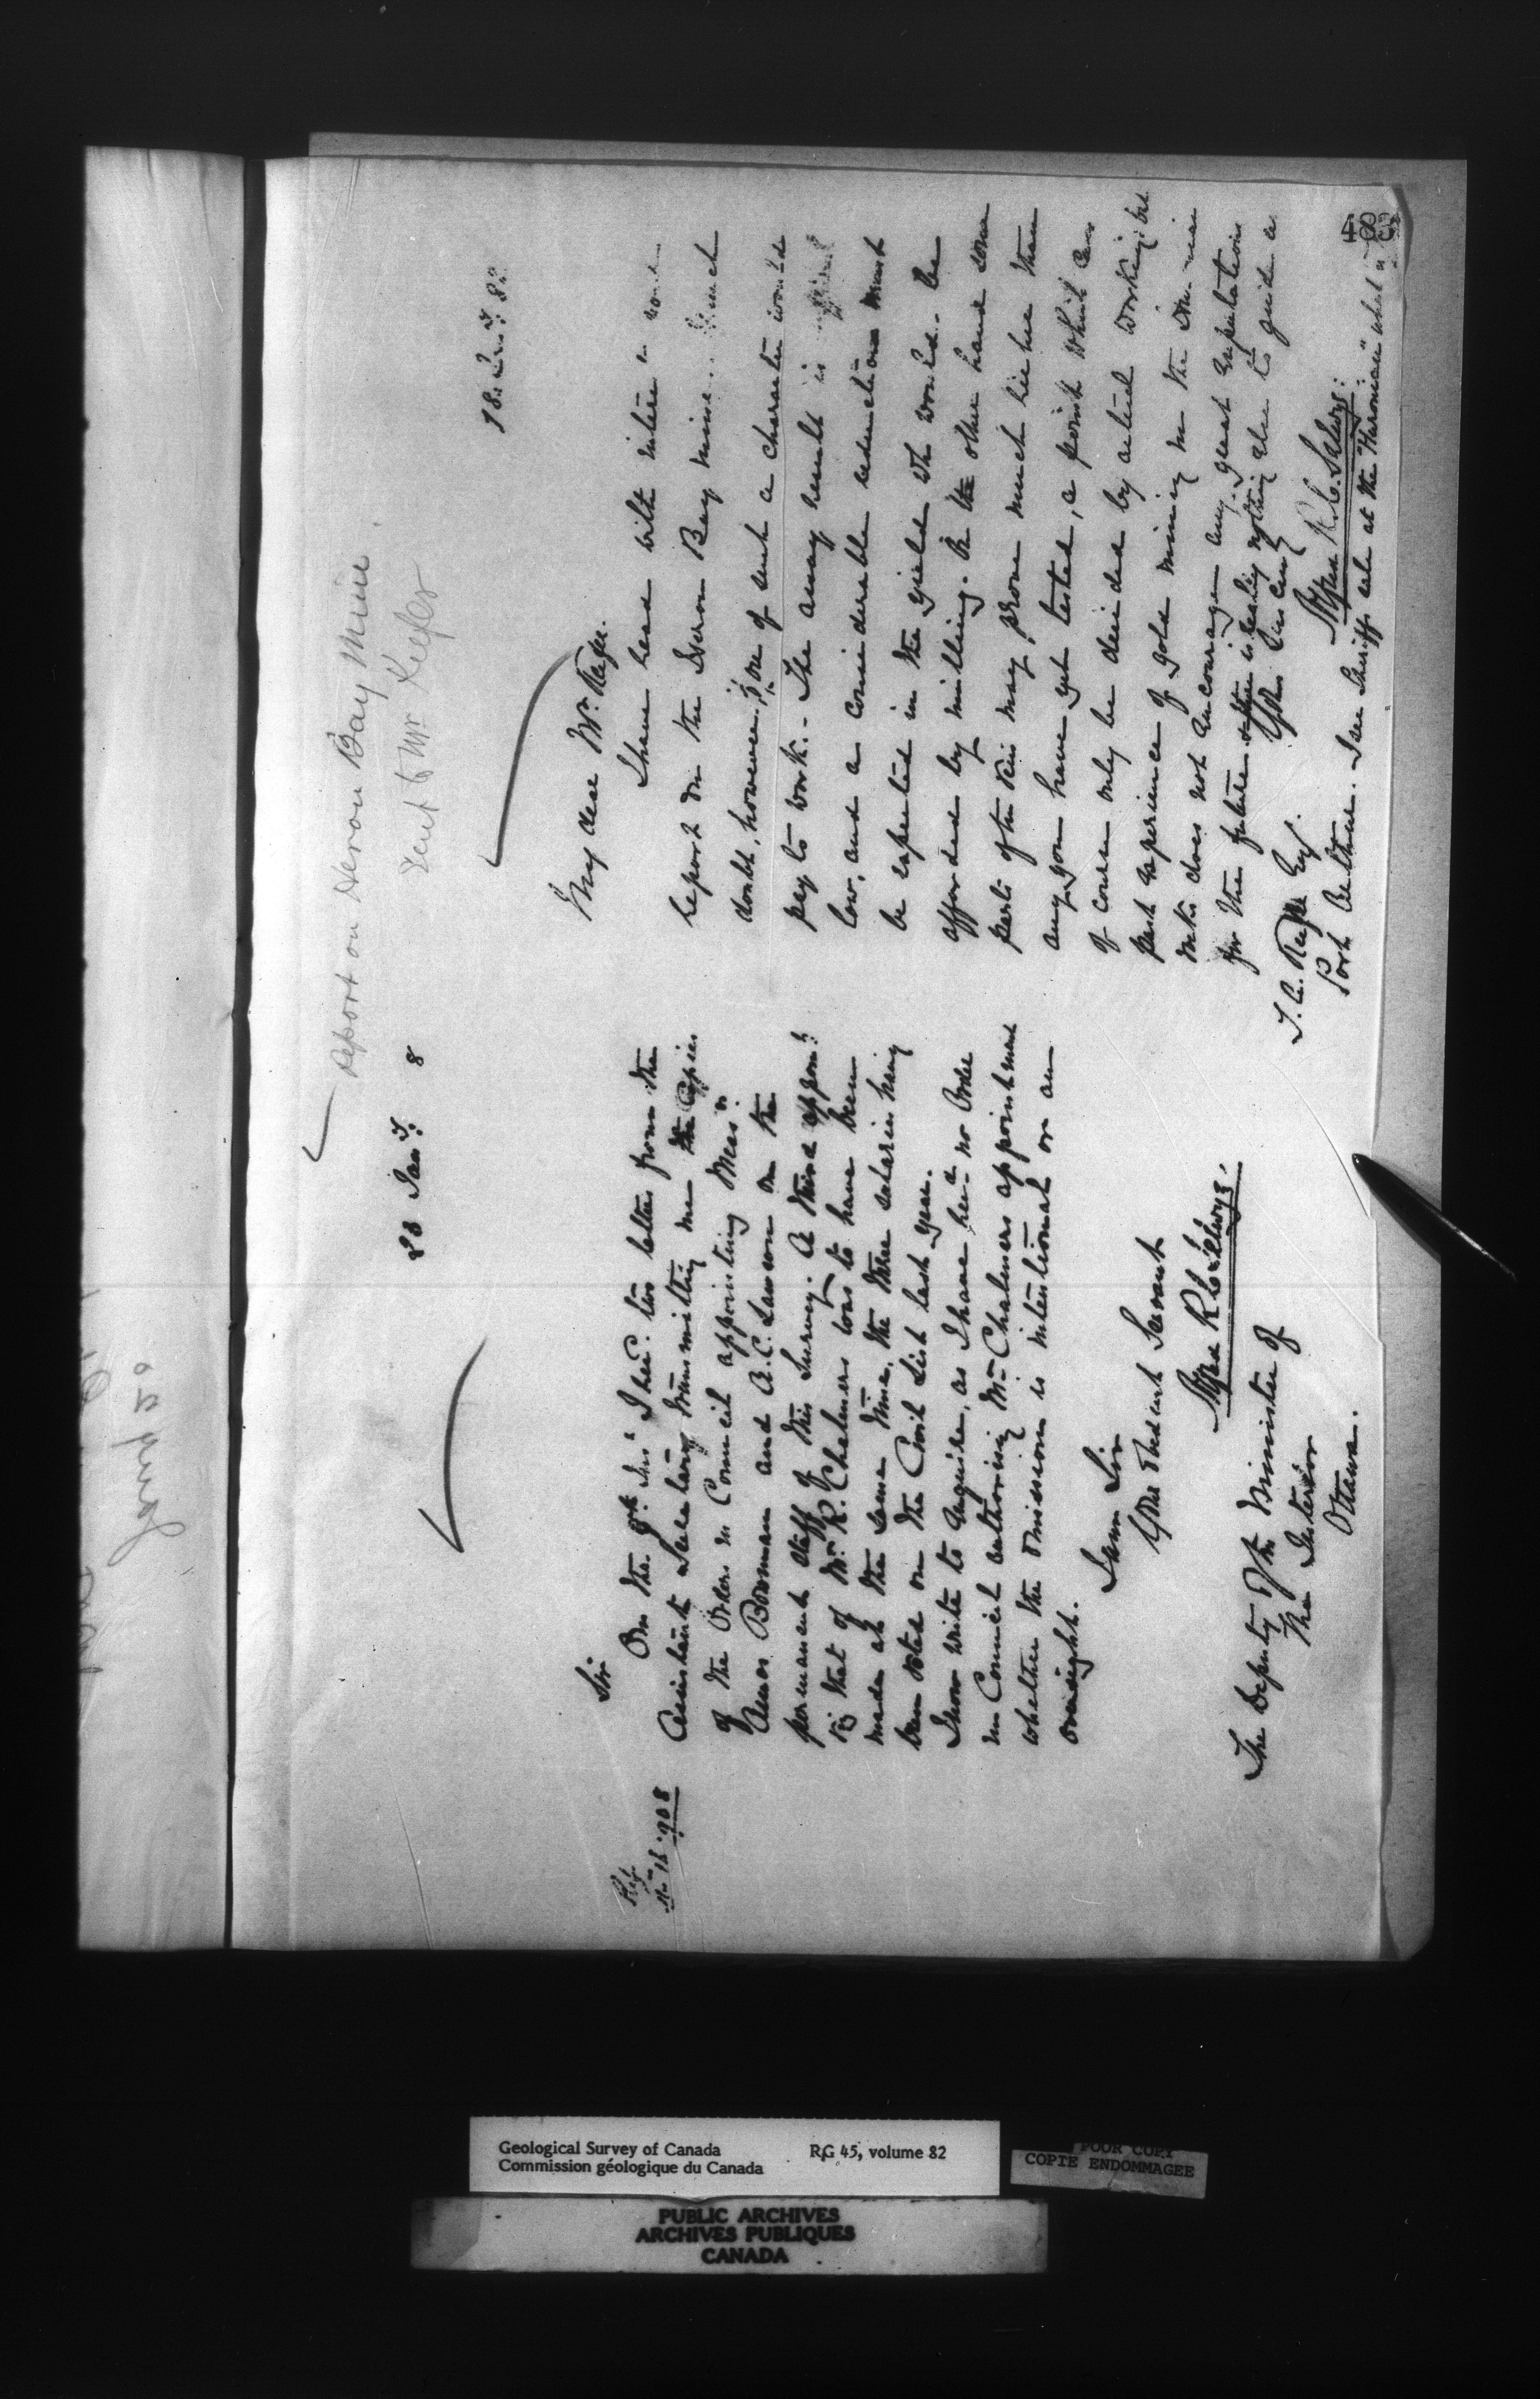 Jany 20
Report on Heron Bay Mine
Sent to Mr Keefer
20 Jany 8
Ref
No 16.908
Sir
On the 9th Inst I recd. two letters from the
Assistant Secretary transmitting me the Copies
of the Orders in Council appointing Messrs
Amos Bowman and A.C. Lawson on the
permanent staff of this Survey. A third appoint
viz that of Mr R. Chalmers was to have been
made at the same time, the three salaries having
been voted on the Civil List last year.
I now write to enquire, as I have recd no Order
in Council authorising Mr Chalmers appointment
whether the omission is intentional or an
oversight.
I am Sir
Your Obedient Servant
Signed A R C Selwyn.
The Deputy of the Minister of
The Interior
Ottawa.
18 Jany 8
My dear Mr Keefer.
I have read with interest
report on the Heron Bay mine. I much
doubt, however, if ore of such a character would
pay to work. - The assay result is
low, and a considerable reduction must
be expected in the yield wh would be
afforded by milling. On the other hand some
parts of the vein may prove much richer than
any you have yet tested, a point which can
of course only be decided by actual working but
past experience of gold mining in the
does not encourage any great expectations
for the future & there is really nothing else to guide
Yours Sincerely
Signed A R. C. Selwyn.
T. A. Keefer Esq.
Port Arthur. I see Sheriffs sale at the "Huronian" what
483
Geological Survey of Canada RG 45, volume 82
Commission géologique du Canada
POOR COPY
COPIE ENDOMMAGEE
PUBLIC ARCHIVES
ARCHIVES PUBLIQUES
CANADA